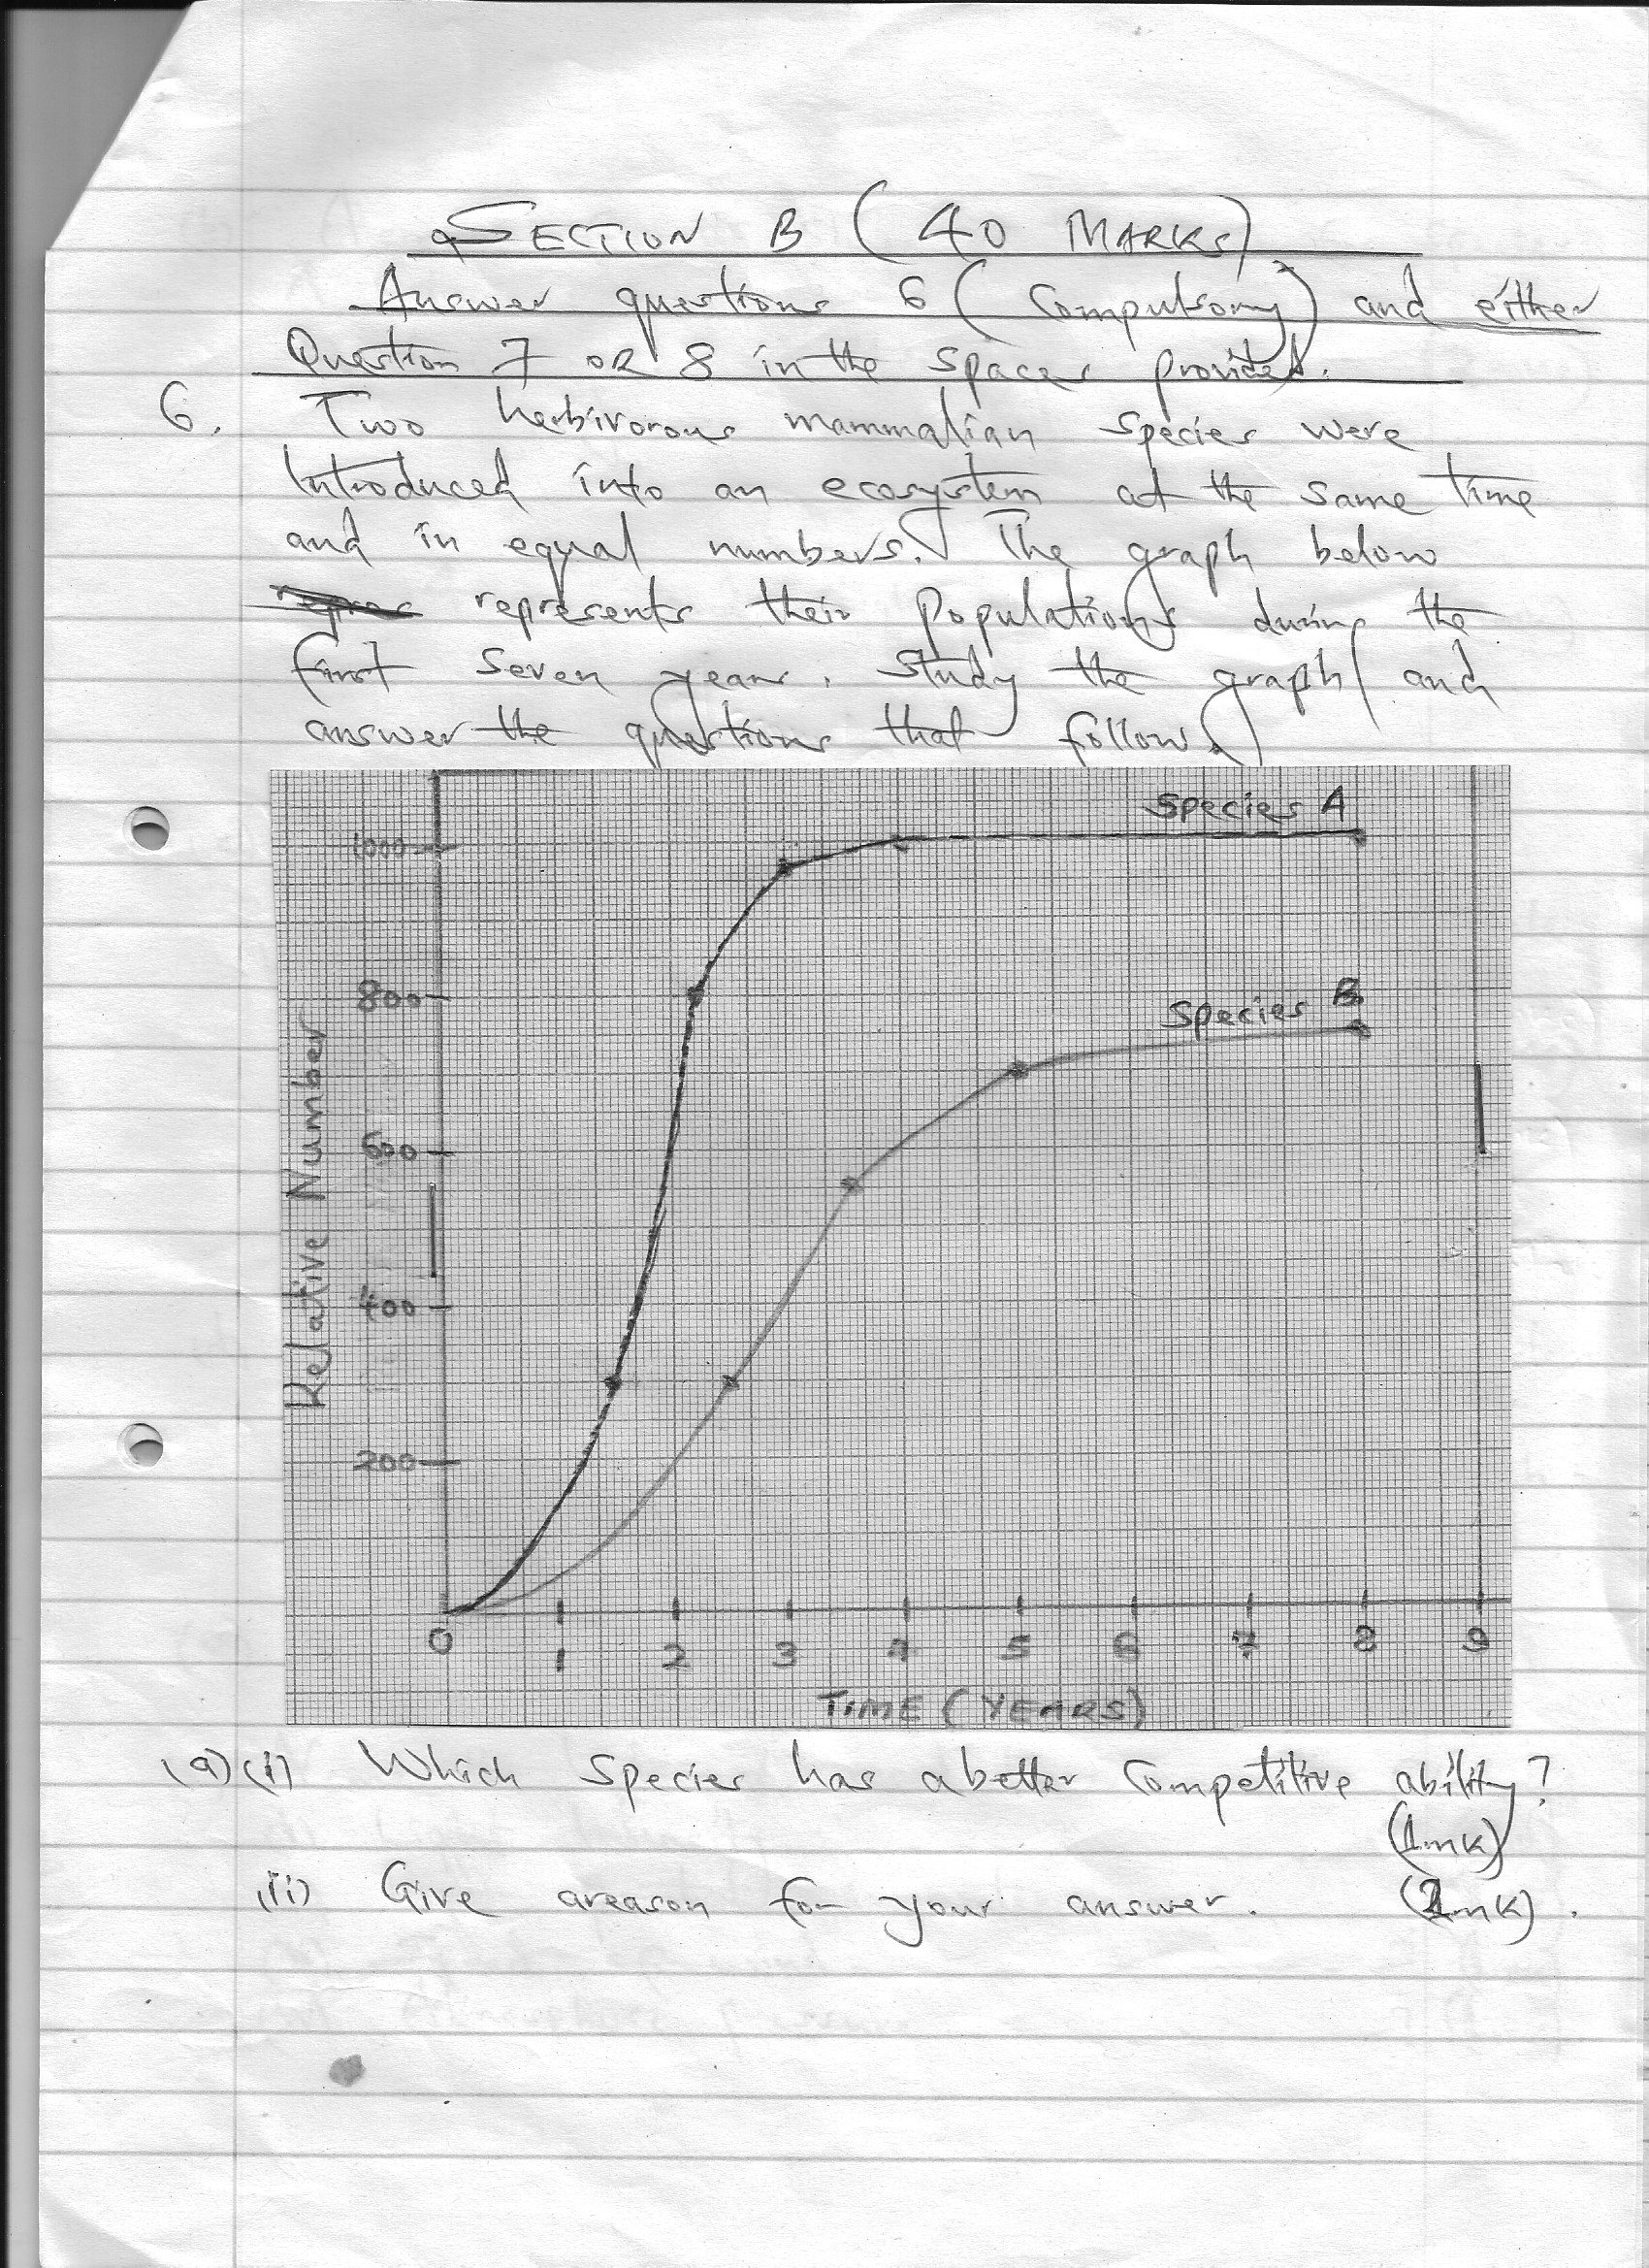 SECTION B (40 MARKS)
Answer questions 6 (Compulsory) and either
Question 7 OR 8 in the spaces provided.
6. Two herbivorous mammalian species were
introduced into an ecosystem at the same time
and in equal numbers. The graph below
represents their populations during the
first seven years. Study the graph and
answer the questions that follow.
Species A
1000
800
Species B
600
400
200
Relative Number
0 1 2 3 4 5 6 7 8 9
TIME (YEARS)
(a)(i) Which species has a better competitive ability?
(1mk)
(ii) Give a reason for your answer. (mk).